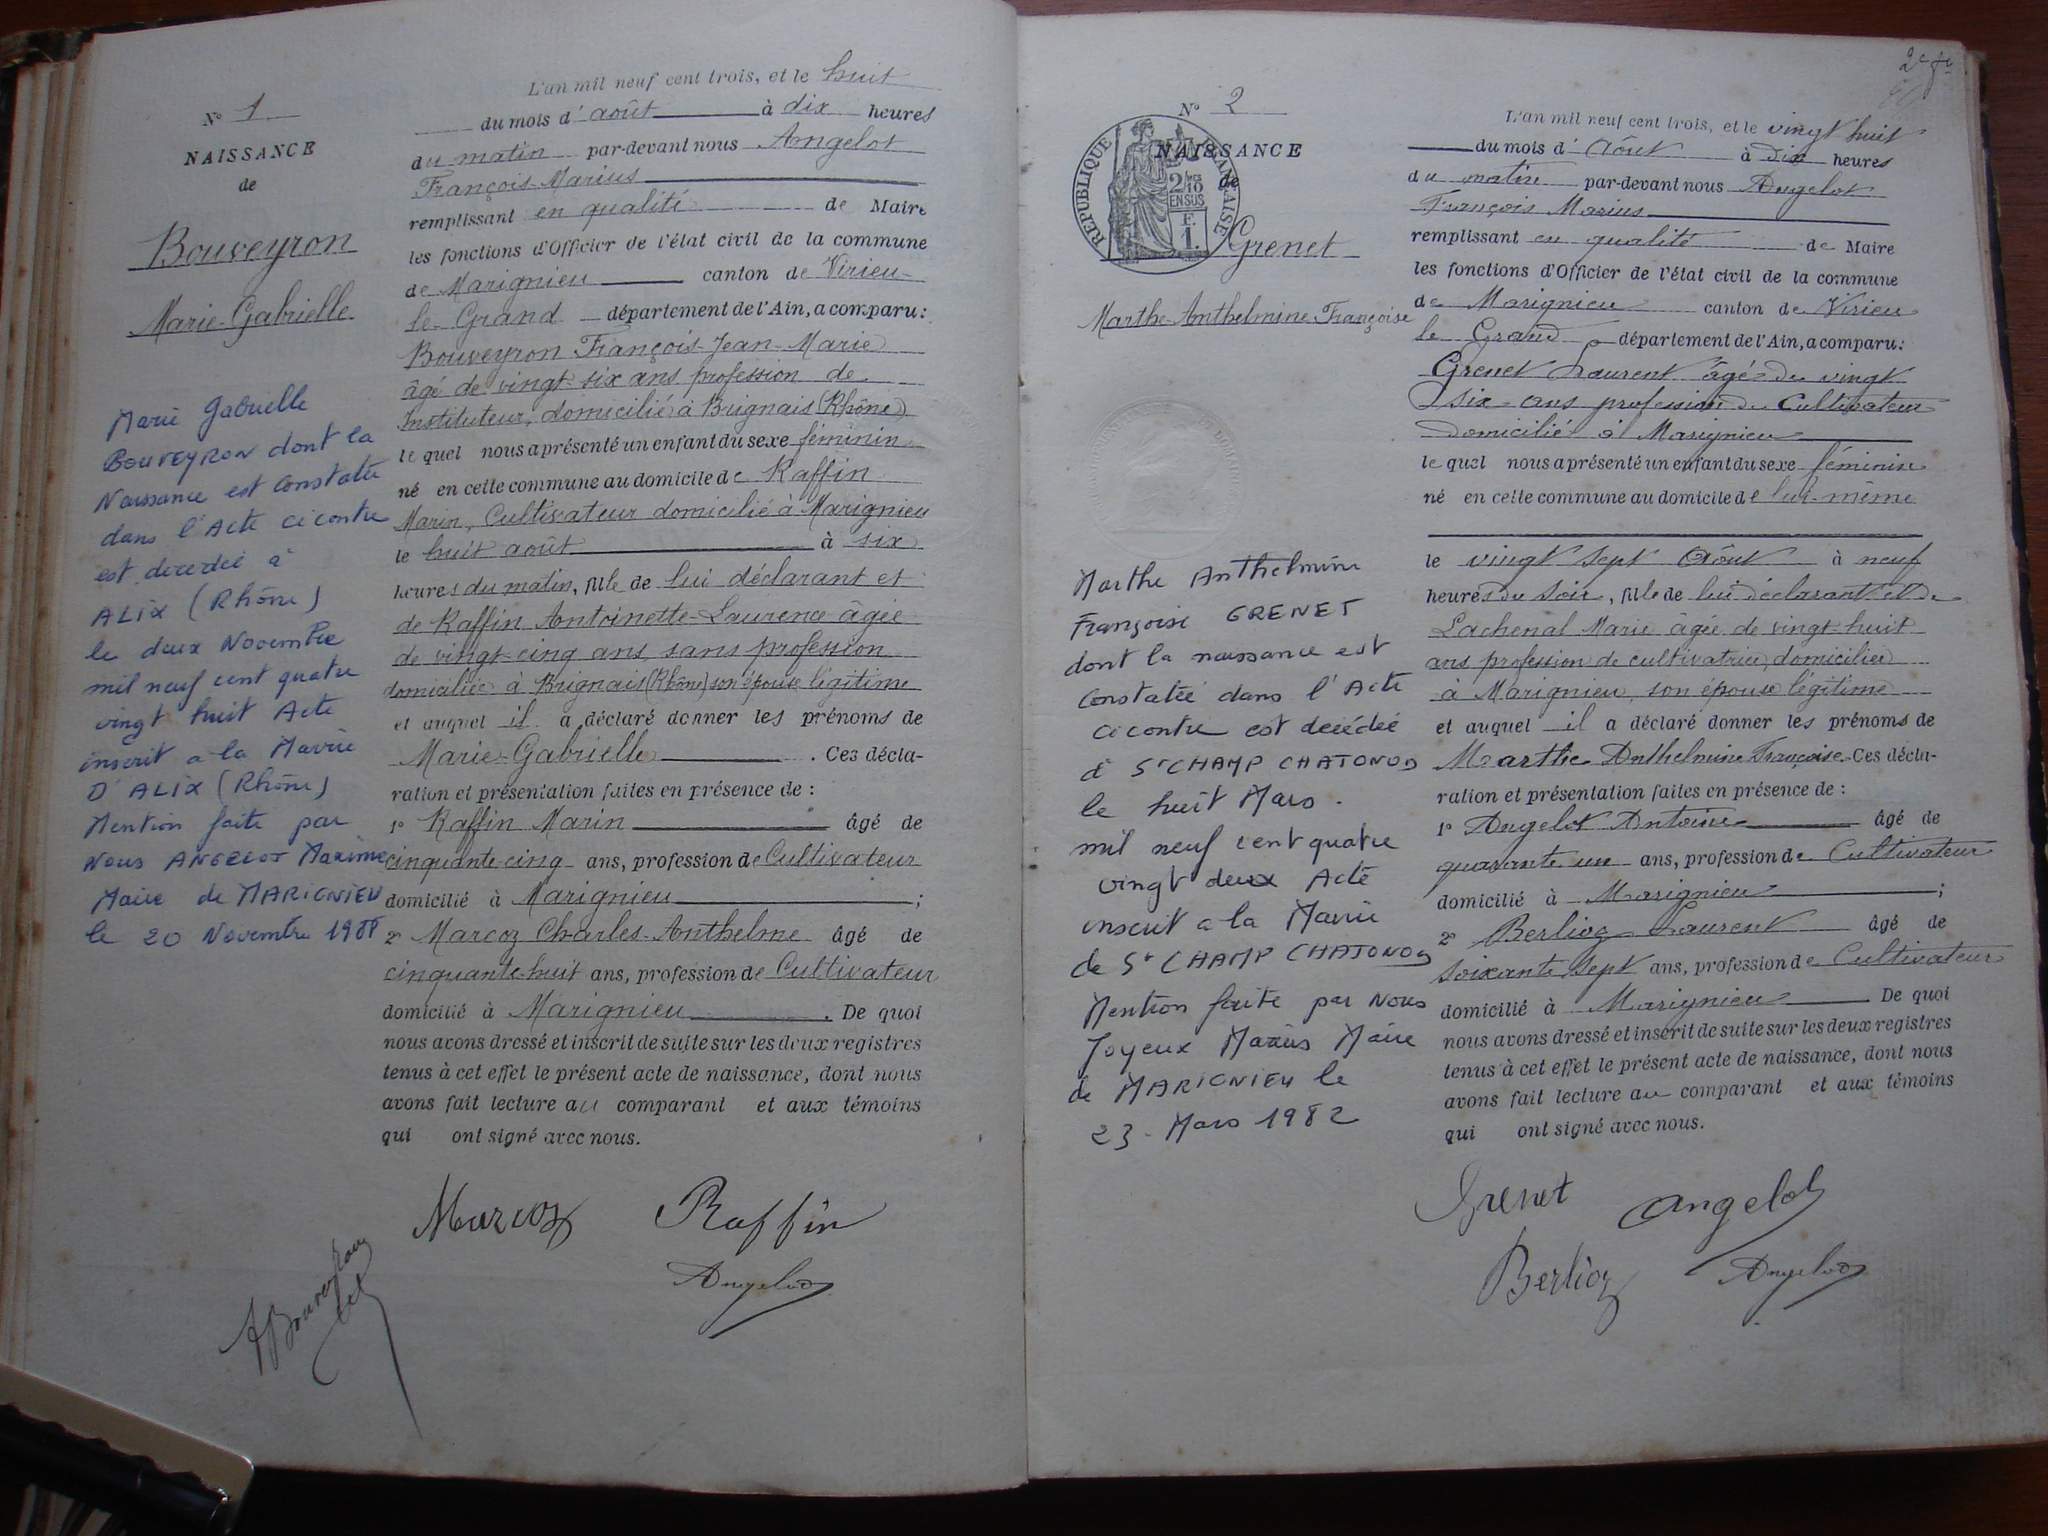 N° 1
NAISSANCE
de
Bouveyron
Marie-Gabrielle
Marie Gabrielle
BOUVEYRON dont la
Naissance est constatée
dans l'Acte ci contre
est décédée à
ALIX (Rhône)
le deux Novembre
mil neuf cent quatre
vingt huit Acte
inscrit a la Mairie
D'ALIX (Rhône)
Mention faite par
Nous ANGELOT Maxime
Maire de MARIGNIEU
le 20 Novembre 1988
L'an mil neuf cent trois, et le huit
du mois d'août à dix heures
du matin par-devant nous Angelot
François-Marius
remplissant en qualité de Maire
les fonctions d'Officier de l'état civil de la commune
de Marignieu canton de Virieu-
le-Grand département de l'Ain, a comparu:
Bouveyron François-Jean-Marie
âgé de vingt-six ans profession de
Instituteur, domicilié à Brignais (Rhône)
le quel nous a présenté un enfant du sexe féminin
né en cette commune au domicile de Raffin
Marin, Cultivateur domicilié à Marignieu
le huit août à six
heures du matin, fille de lui déclarant et
de Raffin Antoinette-Laurence âgée
de vingt-cinq ans, sans profession
domiciliée à Brignais (Rhône) son épouse légitime
et auquel il a déclaré donner les prénoms de
Marie-Gabrielle. Ces décla-
ration et présentation faites en présence de :
1° Raffin Marin âgé de
cinquante-cinq ans, profession de Cultivateur
domicilié à Marignieu ;
2° Marcoz Charles-Anthelme âgé de
cinquante-huit ans, profession de Cultivateur
domicilié à Marignieu. De quoi
nous avons dressé et inscrit de suite sur les deux registres
tenus à cet effet le présent acte de naissance, dont nous
avons fait lecture au comparant et aux témoins
qui ont signé avec nous.
Marcoz Raffin
Angelot
Bouveyron
2e
N° 2
NAISSANCE
de
REPUBLIQUE FRANÇAISE
2/10
EN SUS
F.
1.
Grenet
Marthe-Anthelmine-Françoise
Marthe Anthelmine
Françoise GRENET
dont la naissance est
constatée dans l'Acte
ci contre est décédée
à St CHAMP CHATONOD
le huit Mars.
mil neuf cent quatre
vingt deux Acte
inscrit a la Mairie
de St CHAMP CHATONOD
Mention faite par Nous
Joyeux Marius Maire
de MARIGNIEU le
23 - Mars 1982
L'an mil neuf cent trois, et le vingt huit
du mois d'Aôut à dix heures
du matin par-devant nous Angelot
François Marius
remplissant en qualité de Maire
les fonctions d'Officier de l'état civil de la commune
de Marignieu canton de Virieu
le Grand département de l'Ain, a comparu:
Grenet Laurent âgé de vingt
six ans profession de Cultivateur
Domicilié à Marignieu
le quel nous a présenté un enfant du sexe féminin
né en cette commune au domicile de lui-même
le vingt sept Aôut à neuf
heures du soir, fille de lui déclarant et de
Lachenal Marie âgée de vingt huit
ans profession de cultivatrice, domiciliée
à Marignieu, son épouse légitime
et auquel il a déclaré donner les prénoms de
Marthe Anthelmine Françoise. Ces décla-
ration et présentation faites en présence de :
1° Angelot Antoine âgé de
quarante un ans, profession de Cultivateur
domicilié à Marignieu ;
2° Berlioz Laurent âgé de
soixante sept ans, profession de Cultivateur
domicilié à Marignieu De quoi
nous avons dressé et inscrit de suite sur les deux registres
tenus à cet effet le présent acte de naissance, dont nous
avons fait lecture au comparant et aux témoins
qui ont signé avec nous.
Grenet Angelot
Berlioz Angelot